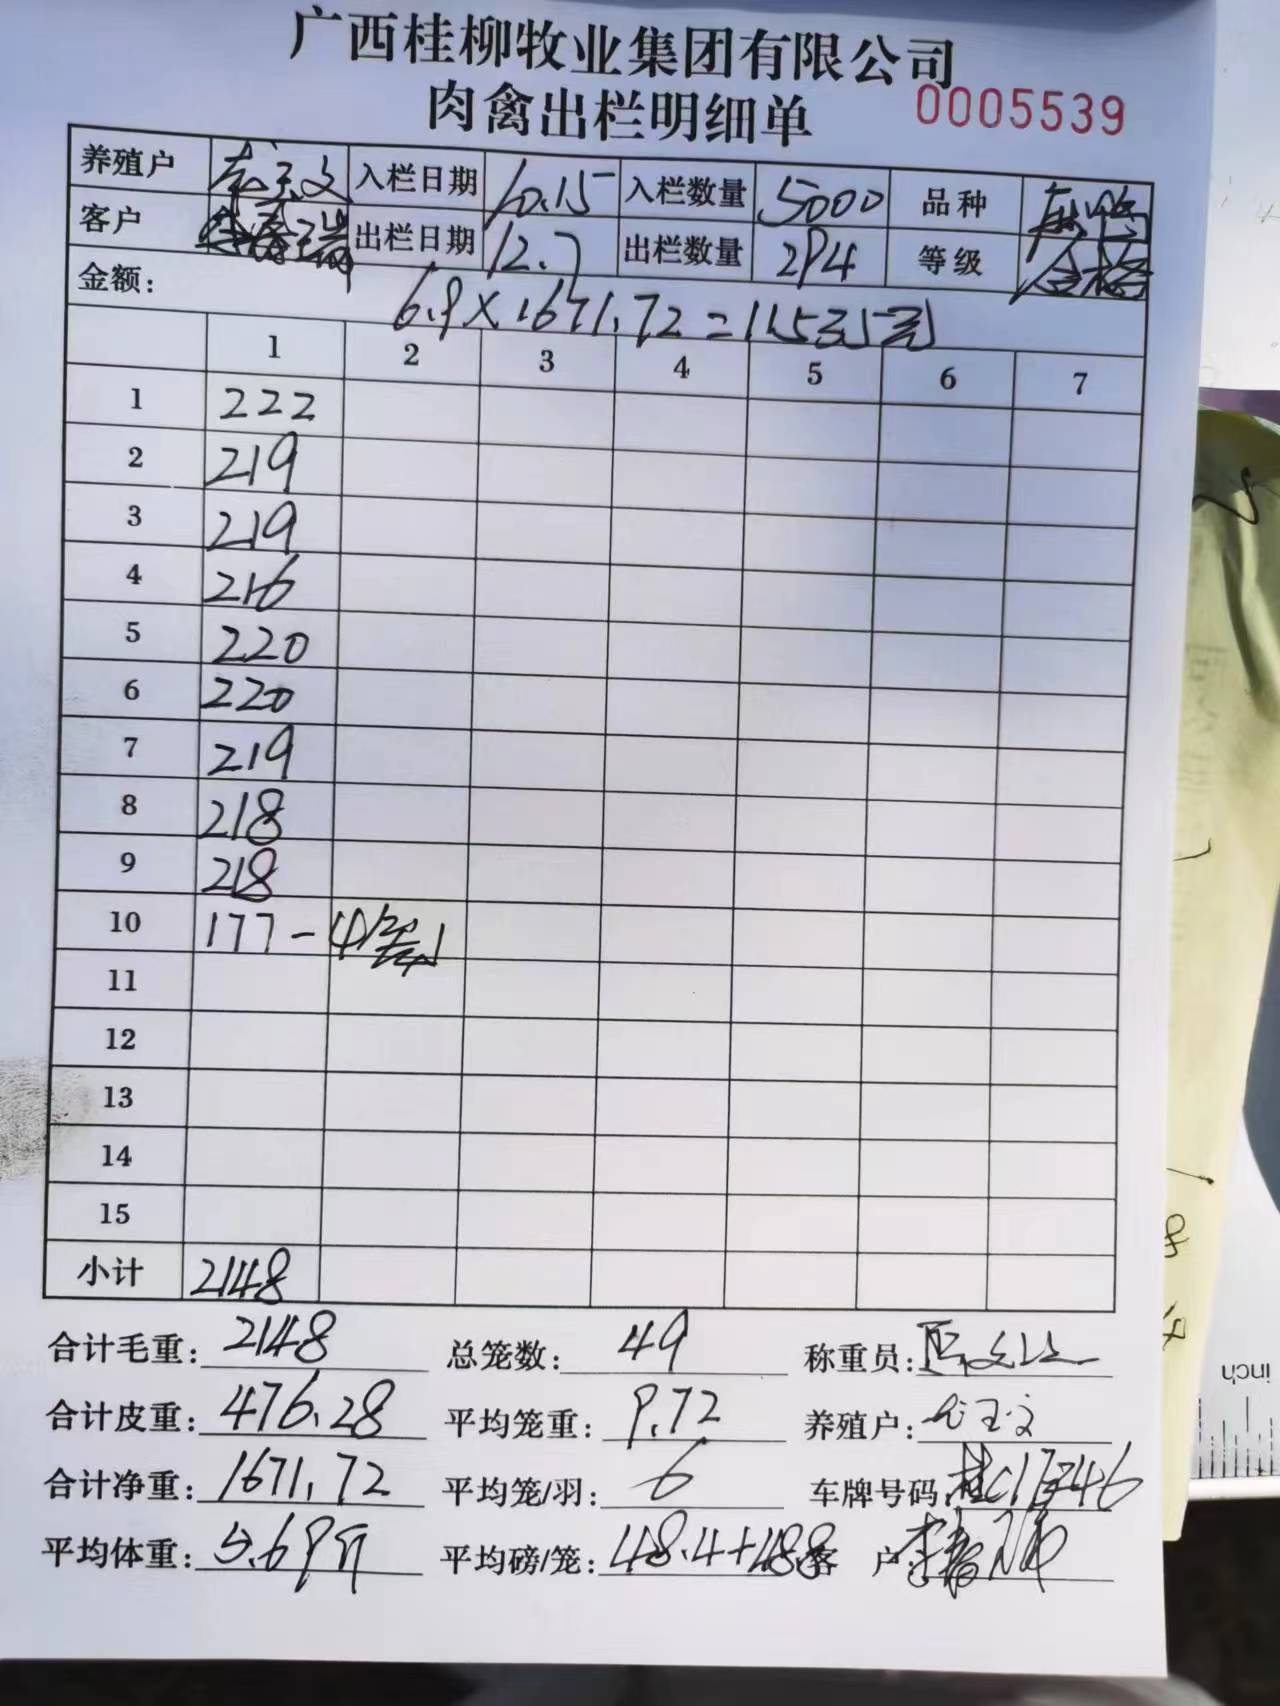 广西桂柳牧业集团有限公司
肉禽出栏明细单
0005539
养殖户 入栏日期 10.15 入栏数量 5000 品种 麻鸭
客户 出栏日期 12.7 出栏数量 294 等级 合格
金额: 6.9×1671.72=11535元
1 2 3 4 5 6 7
1 222
2 219
3 219
4 216
5 220
6 220
7 219
8 218
9 218
10 177-4
11
12
13
14
15
小计 2148
合计毛重: 2148 总笼数: 49 称重员:
合计皮重: 476.28 平均笼重: 9.72 养殖户:
合计净重: 1671.72 平均笼/羽: 6 车牌号码:
平均体重: 5.69斤 平均磅/笼: 48.4+48.8 客户
inch